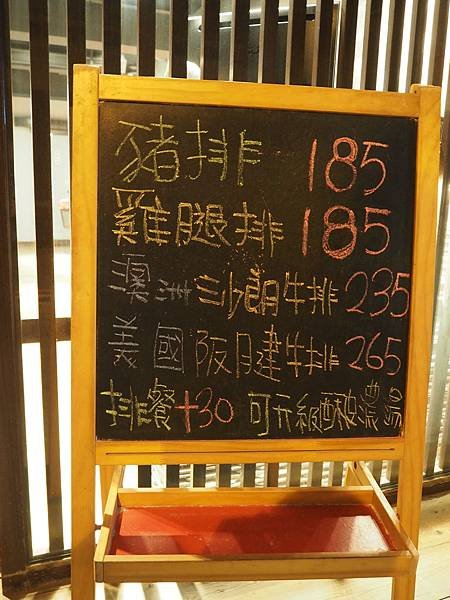 豬排 185
雞腿排 185
澳洲沙朗牛排 235
美國阪腱牛排 265
排餐+30 可升級酥皮濃湯